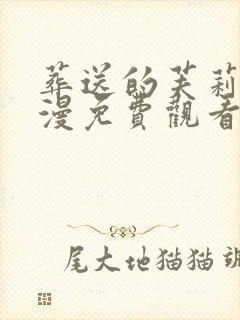 葬送的芙莉
漫免費觀看
尾大地猫猫